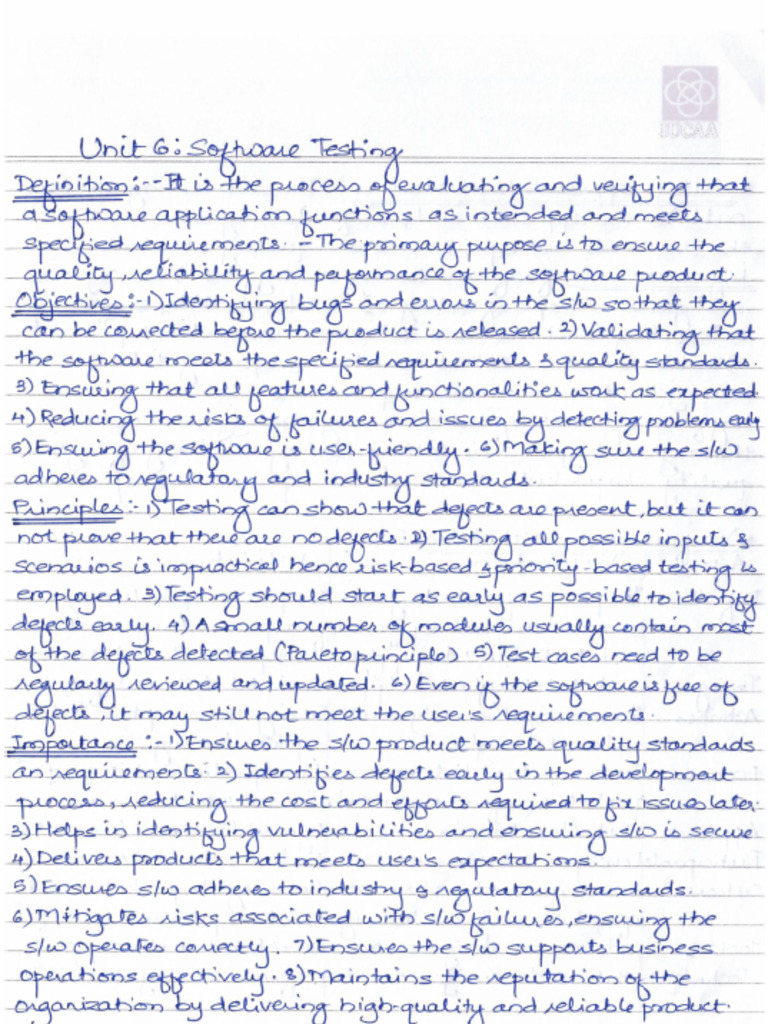 IUCAA
Unit 6: Software Testing
Definition:-- It is the process of evaluating and verifying that
a software application functions as intended and meets
specified requirements. - The primary purpose is to ensure the
quality, reliability and performance of the software product.
Objectives:- 1) Identifying bugs and errors in the s/w so that they
can be corrected before the product is released. 2) Validating that
the software meets the specified requirements & quality standards.
3) Ensuring that all features and functionalities work as expected
4) Reducing the risks of failures and issues by detecting problems early
5) Ensuring the software is user-friendly. 6) Making sure the s/w
adheres to regulatory and industry standards.
Principles:- 1) Testing can show that defects are present, but it can
not prove that there are no defects. 2) Testing all possible inputs &
scenarios is impractical hence risk-based & priority-based testing is
employed. 3) Testing should start as early as possible to identify
defects early. 4) A small number of modules usually contain most
of the defects detected (Pareto principle) 5) Test cases need to be
regularly reviewed and updated. 6) Even if the software is free of
defects, it may still not meet the user's requirements.
Importance:- 1) Ensures the s/w product meets quality standards
an requirements. 2) Identifies defects early in the development
process, reducing the cost and efforts required to fix issues later.
3) Helps in identifying vulnerabilities and ensuring s/w is secure
4) Delivers products that meets user's expectations.
5) Ensures s/w adheres to industry & regulatory standards.
6) Mitigates risks associated with s/w failures, ensuring the
s/w operates correctly. 7) Ensures the s/w supports business
operations effectively. 8) Maintains the reputation of the
organization by delivering high-quality and reliable product.